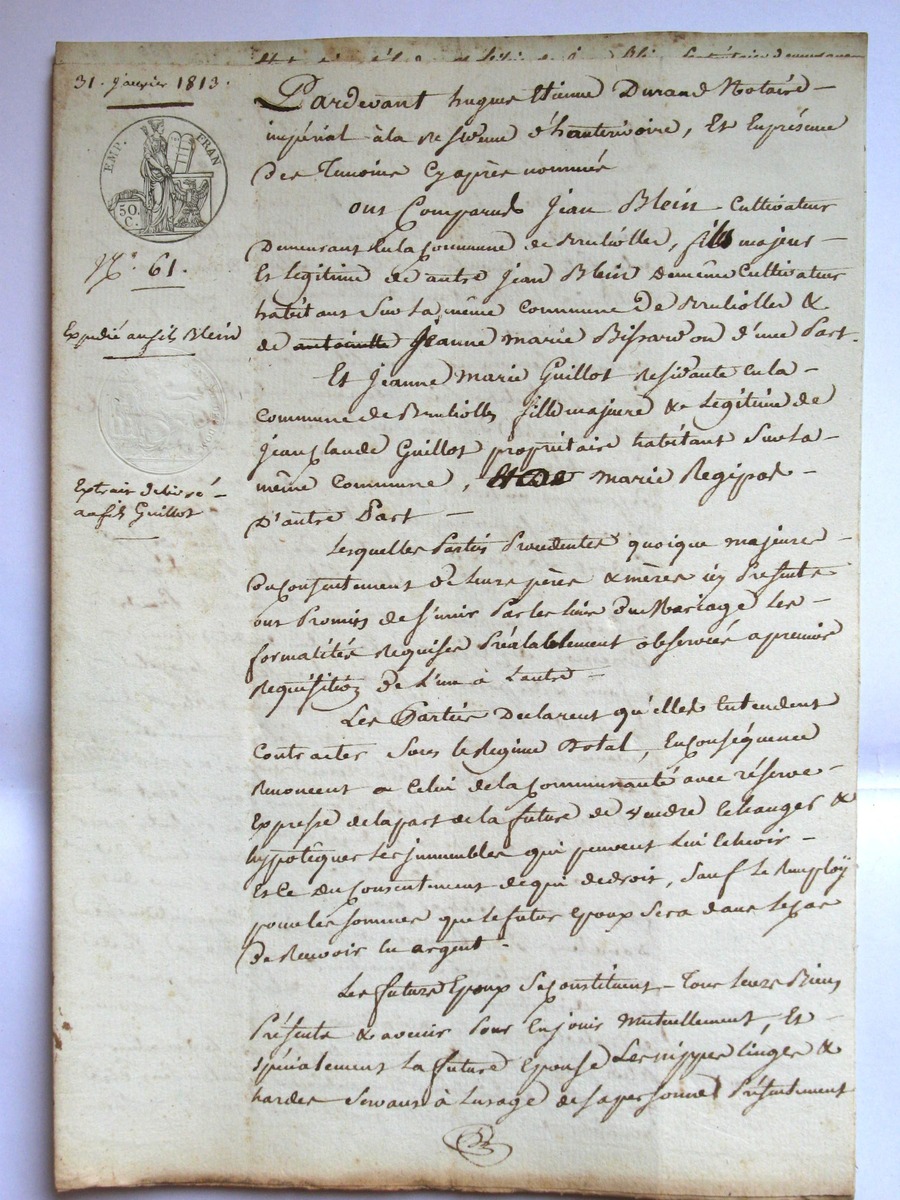 31. Janvier 1813.
EMP. FRAN
50. C.
N.° 61.
Expédié au fils Blein
Extrait délivré
au fils Guillot
Pardevant hugues Etienne Durand Notaire
impérial à la residence d'hauterivoire, Et En présence
des Temoins Cy après nommés
ont Comparus Jean Blein Cultivateur
Demeurant En la Commune de Brulliolles, fils majeur
Et legitime de autre Jean Blein de même Cultivateur
habitant Sur la même Commune de Brulliolles &
de antoinette Jeanne marie Bissardon d'une Part.
Et Jeanne Marie Guillot residante en la
Commune de Brulliolles fille majeure & Legitime de
Jean Claude Guillot propriétaire habitant Sur la
même Commune, Et De marie Regipas
D'autre Part
Lesquelles Parties Procedentes quoique majeures
Du Consentement de leurs pères & mères icy Presents
ont Promis de S'unir Par les liens Du Mariage les
formalités Requises Préalablement observées a premiere
Requisition de L'une à Lautre
Les Parties Declarent qu'elles Entendent
Contracter Sous le Regime Dotal, En conséquence
Renoncent a Celui de la Communauté avec réserve
Expresse de la part de la future de vendre Echanger &
hypotéquer les immeubles qui peuvent Lui Echeoir
Et Ce Du Consentement de qui de droit, Sauf le Remploÿ
pour les sommes que le futur Epoux Sera dans le cas
De Recevoir En argent.
Les future Epoux Se Constituent Tous leurs Biens
Présents & avenir Pour En jouir Mutuellement, Et
Spécialement La future Epouse Les nippes linges &
hardes Servant à Lusage de sa personne Présentement